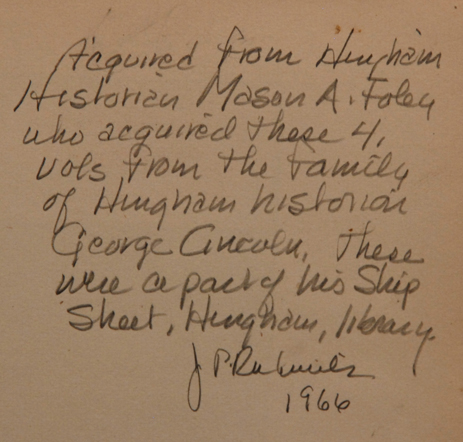 Acquired from Hingham
Historian Mason A. Foley
who acquired these 4,
vols from the family
of Hingham historian
George Lincoln, these
were a part of his Ship
Street, Hingham, library.
J P.
1966